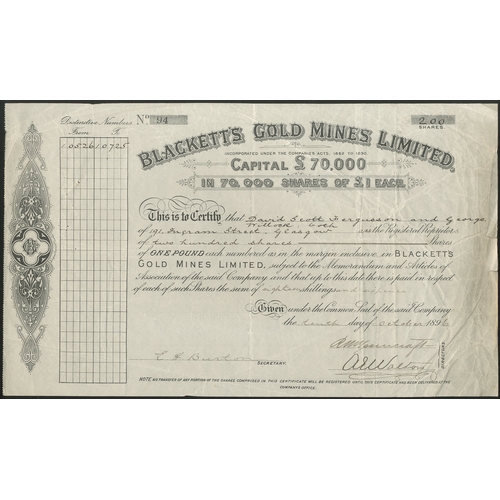 Distinctive Numbers
From To
10526 10725
No 94
200
SHARES.
BLACKETT'S GOLD MINES LIMITED,
INCORPORATED UNDER THE COMPANIES ACTS. 1862 TO 1890.
CAPITAL £70,000
IN 70,000 SHARES OF £1 EACH.
This is to Certify that David Scott Fergusson and George
of 191 Ingram Street, Glasgow are the Registered Proprietors
of two hundred shares Shares
of ONE POUND each numbered as in the margin inclusive, in BLACKETTS
GOLD MINES LIMITED, subject to the Memorandum and Articles of
Association of the said Company and that up to this date there is paid in respect
of each of such Shares the sum of shillings
Given under the Common Seal of the said Company
the tenth day of October 1896
SECRETARY.
DIRECTORS.
NOTE. NO TRANSFER OF ANY PORTION OF THE SHARES COMPRISED IN THIS CERTIFICATE WILL BE REGISTERED UNTIL THIS CERTIFICATE HAS BEEN DELIVERED AT THE
COMPANY'S OFFICE.